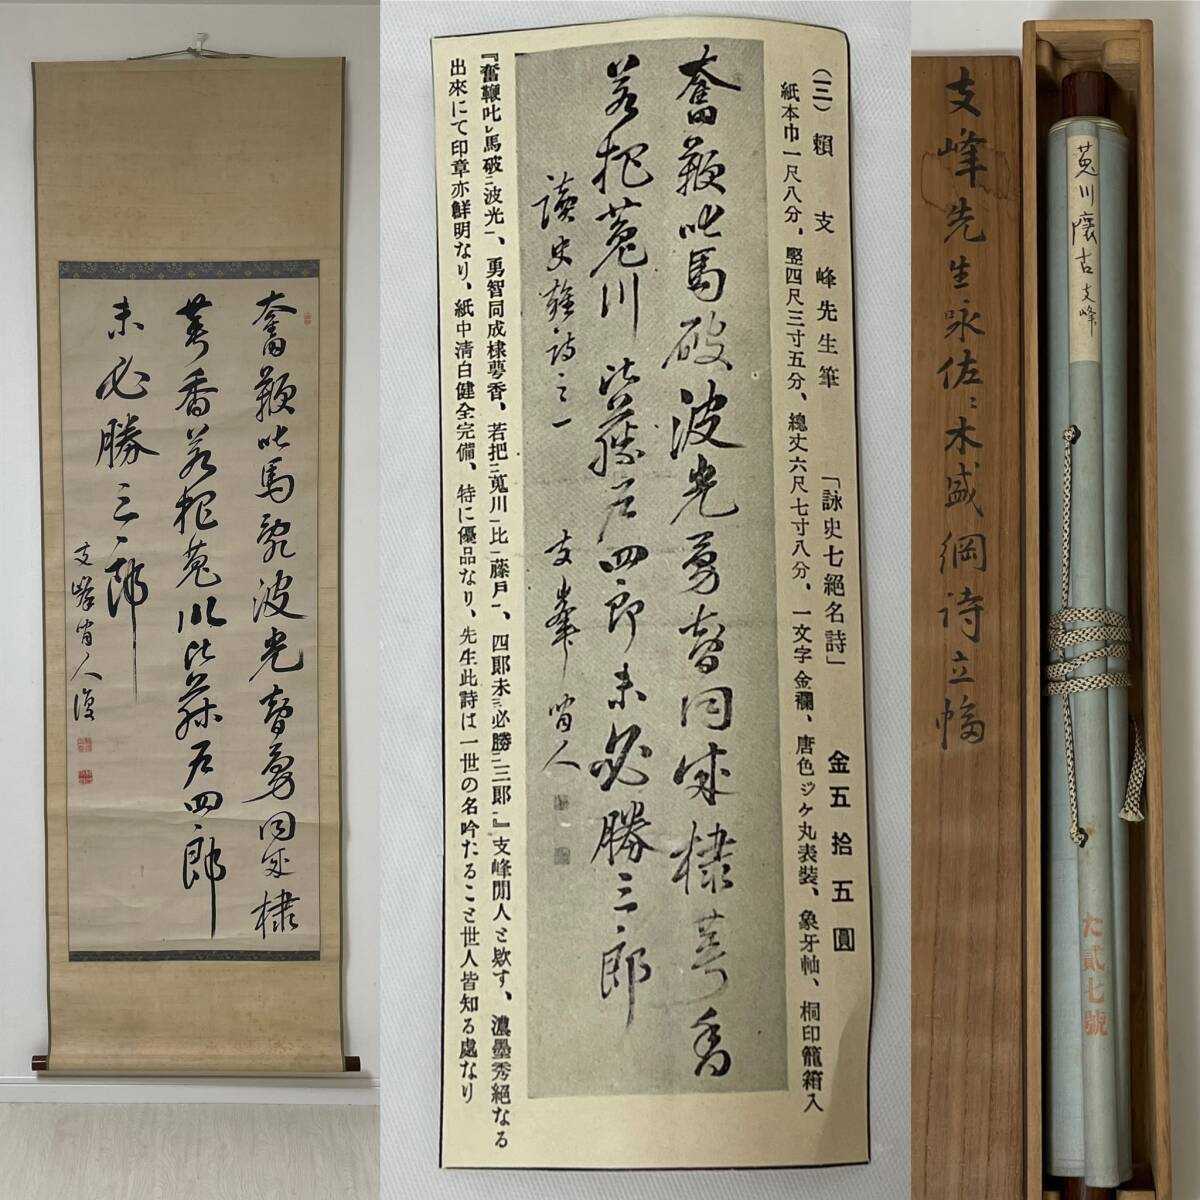 奮鞭叱馬乱波光智勇同成棣
萼香若把菟川比藤戸四郎
未必勝三郎
支峰閒人復
(三)頼支峰先生筆 「詠史七絕名詩」 金五拾五圓
紙本巾一尺八分、竪四尺三寸五分、總丈六尺七寸八分、一文字金襴、唐色ジケ丸表裝、象牙軸、桐印籠箱入
奮鞭叱馬破波光勇智同成棣萼香
若把菟川比藤戸四郎未必勝三郎
讀史雜詩之一 支峯閒人
『奮鞭叱レ馬破二波光一、勇智同成棣萼香、若把三菟川一比二藤戸一、四郎未三必勝二三郎一』支峰閒人と欵す、濃墨秀絕なる
出來にて印章亦鮮明なり、紙中淸白健全完備、特に優品なり、先生此詩は一世の名吟たること世人皆知る處なり
支峰先生咏佐々木盛綱詩立幅
菟川懷古支峰
た貳七號